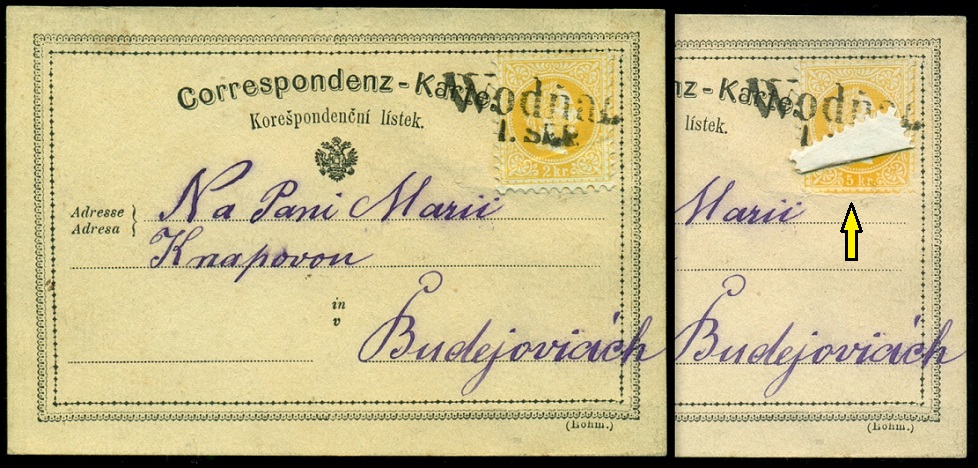 Correspondenz-Karte.
Korešpondenční lístek.
Wodňan
1. SEP.
2 kr.
Adresse
Adresa
Na Pani Marii
Knapovou
in
v
Budejovicích
(Böhm.)
nz-Karte
Wodňan
lístek.
1
5 kr.
Marii
Budejovicích
(Böhm.)